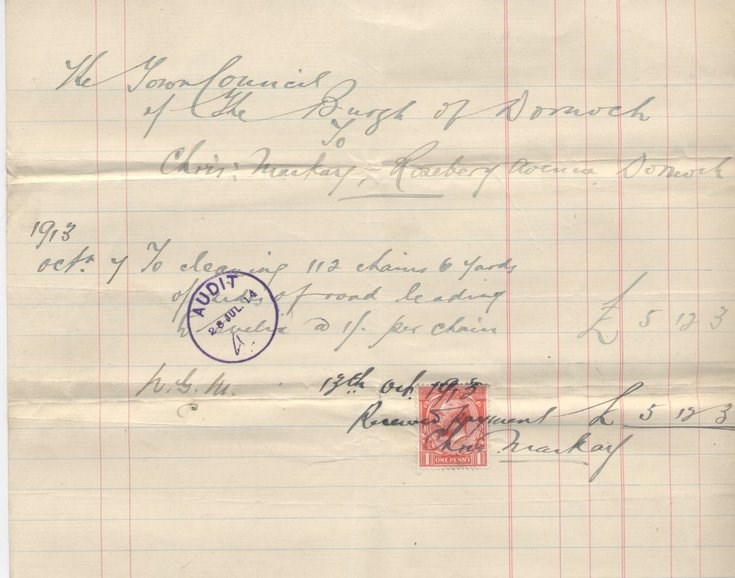 The Town Council
of The Burgh of Dornoch
To
Chris: Mackay, Rosebery Avenue Dornoch
1913
Oct. 7 To cleaning 112 chains 6 yards
of sides of road leading
to Evelix @ 1/- per chain £ 5 12 3
AUDIT
28 JUL. 14
W.G.M. 13th Oct. 1913
Received payment £ 5 12 3
Chris Mackay
ONE PENNY